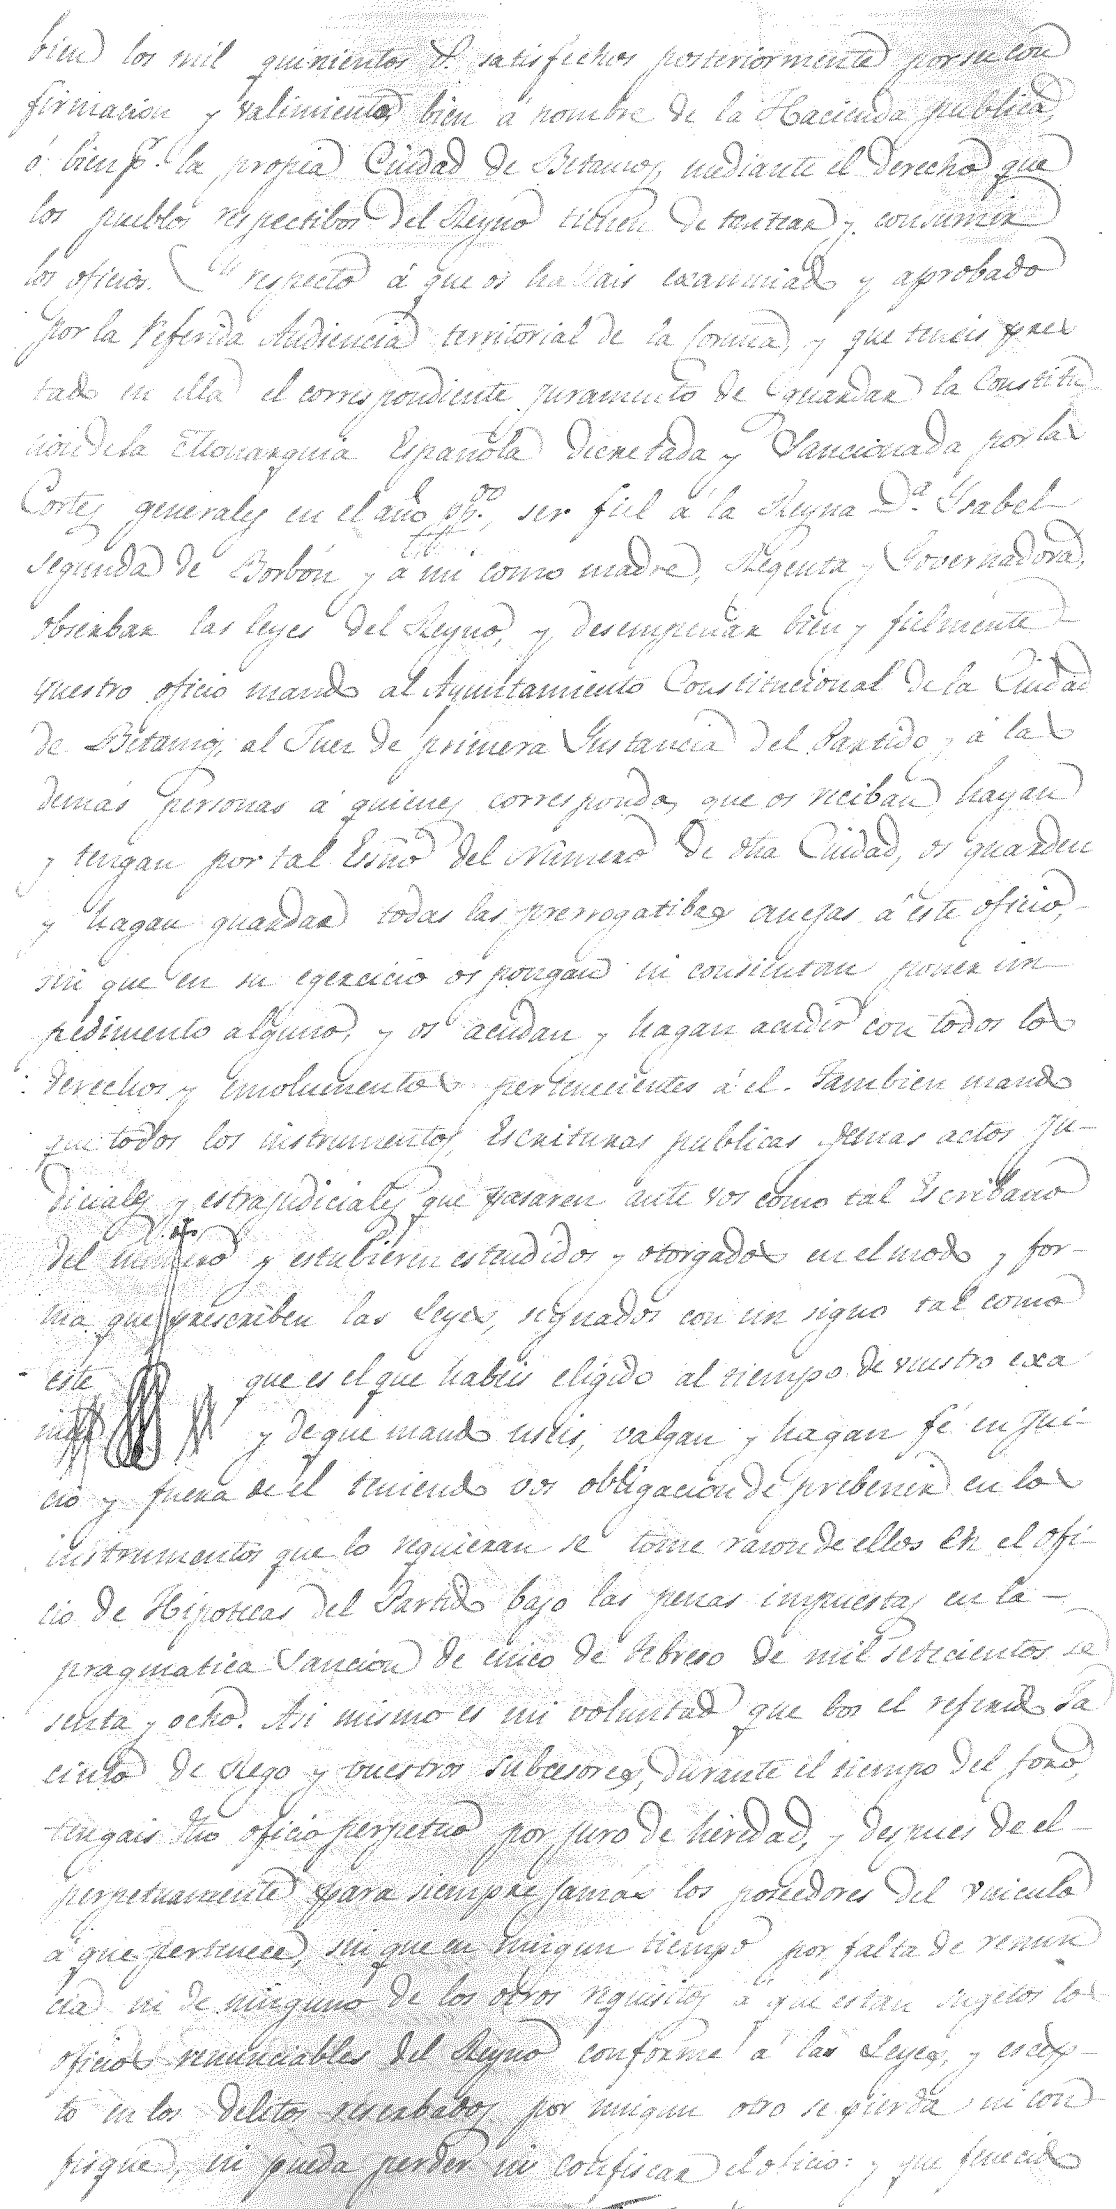 bien los mil quinientos r.s satisfechos posteriormente por su con
firmacion y valimiento, bien á nombre de la Hacienda publica,
ó bien p.r la propia Ciudad de Betanzos, mediante el derecho que
los pueblos respectibos del Reyno tienen de tantear y consumir
los oficios. Y respecto á que os hallais examinado y aprobado
por la referida Audiencia territorial de la Coruña, y que teneis pres
tado en ella el correspondiente juramento de guardar la Constitu
cion de la Monarquia Española decretada y Sancionada por las
Cortes generales en el año pp.do, ser fiel á la Reyna D.a Ysabel
segunda de Borbón y á mi como madre, Regenta y Governadora,
obserbar las leyes del Reyno, y desempeñar bien y fielmente
vuestro oficio mando al Ayuntamiento Constitucional de la Ciudad
de Betanzos, al Juez de primera Ynstancia del Partido y á las
demás personas á quienes corresponda, que os reciban, hayan
y tengan por tal Esño del Número de dha Ciudad, os guarden
y hagan guardar todas las prerrogatibas anejas á este oficio,
sin que en su egercicio os pongan ni consientan poner im
pedimento alguno, y os acudan y hagan acudir con todos los
derechos y emolumentos pertenecientes á él. Tambien mando
que todos los instrumentos, Escrituras publicas demas actos ju-
diciales y estrajudiciales que pasaren ante vos como tal Escribano
del numero y estubieren estendidos y otorgados en el modo y for-
ma que prescriben las Leyes, signados con un signo tal como
este que es el que habeis eligido al tiempo de vuestro exa
men y de que mando useis, valgan y hagan fé en jui-
cio y fuera de el teniendo vos obligacion de prebenir en los
instrumentos que lo requieran se tome razon de ellos en el ofi-
cio de Hipotecas del Partido bajo las penas impuestas en la
pragmatica Sancion de cinco de Febrero de mil setecientos se
senta y ocho. Asi mismo es mi voluntad que bos el referido Ja
cinto de Rego y vuestros subcesores, durante el tiempo del foro,
tengais dho oficio perpetuo por juro de heredad, y despues de el
perpetuamente para siempre jamas los poseedores del vinculo
á que pertenece, sin que en ningun tiempo por falta de renun
cia ni de ninguno de los otros requisitos á que estan sugetos los
oficios renunciables del Reyno conforme á las Leyes, y escep-
to en los delitos reserbados por ningun otro se pierda ni con
fisque, ni pueda perder ni confiscar el oficio: y que fenecido